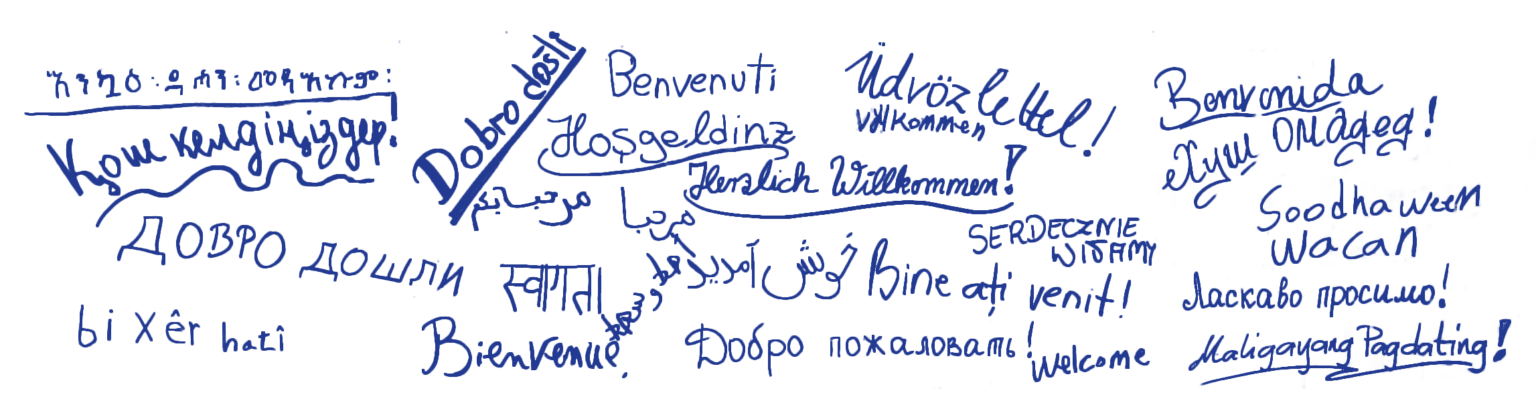 እንኳዕ ብደሓን መጻእኩም፡
Қош келдіңіздер!
Dobro došli
Benvenuti
Hoşgeldinz
Üdvözlettel!
Välkommen
Herzlich Willkommen!
Benvenida
Хуш омадед!
مرحبا بكم
مرحبا
Soodhaween
wacan
SERDECZNIE
WITAMY
ДОБРО ДОШЛИ
स्वागता
خوش آمدید
Bine ați venit!
Ласкаво просимо!
bi xêr hatî
Bienvenue.
Добро пожаловать!
Welcome
Maligayang Pagdating!